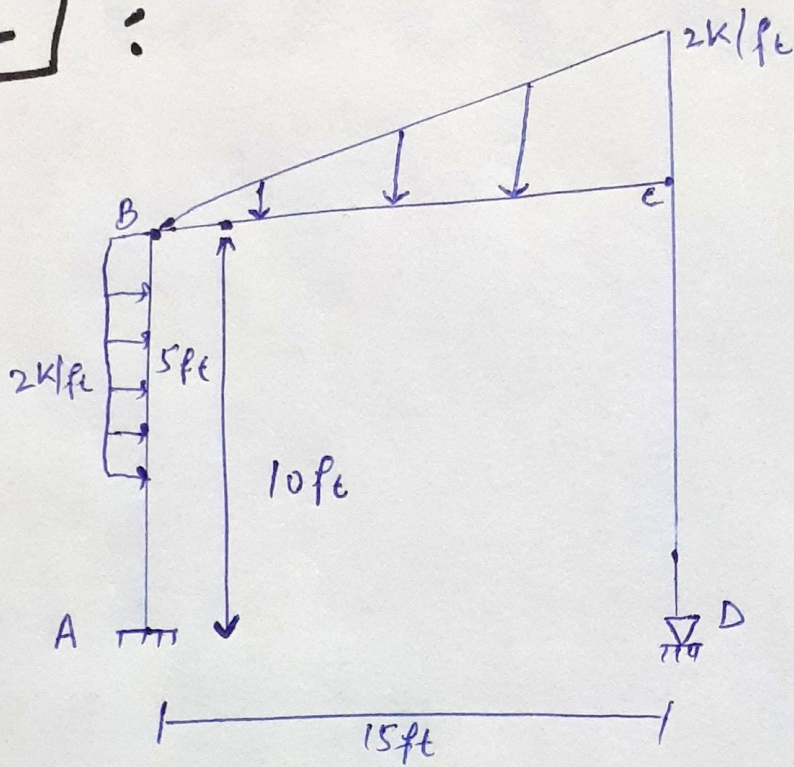 :
2K/ft
B
C
5ft
2K/ft
10ft
A
D
15ft